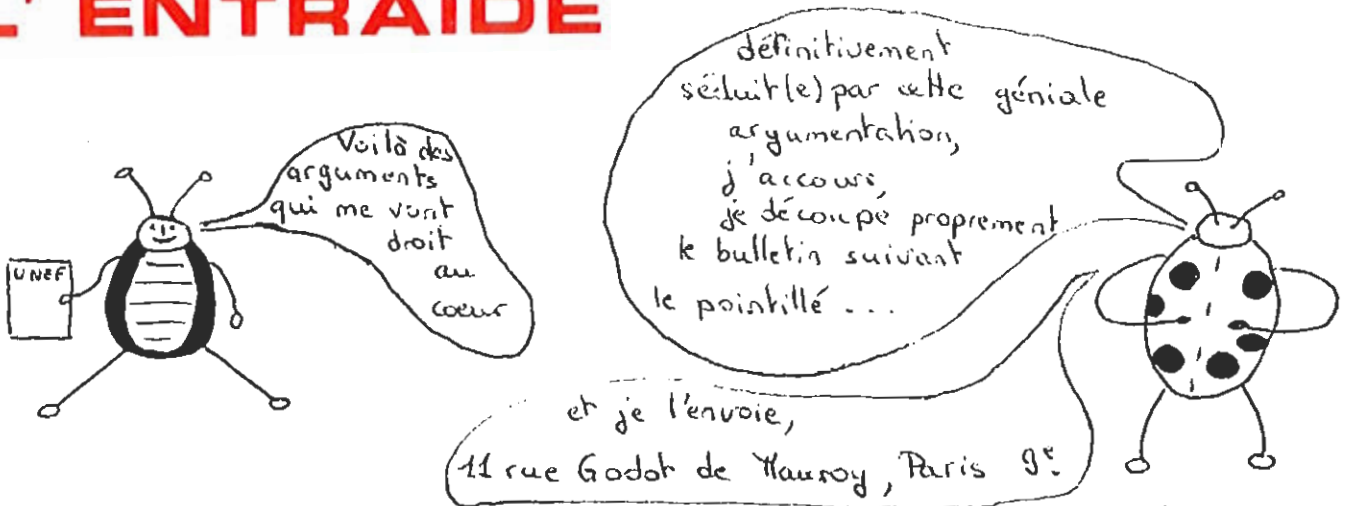 L'ENTRAIDE
Voilà des
arguments
qui me vont
droit
au
coeur
UNEF
définitivement
séduit(e) par cette géniale
argumentation,
j'accours,
je découpe proprement
le bulletin suivant
le pointillé ...
et je l'envoie,
11 rue Godot de Mauroy, Paris 9e.